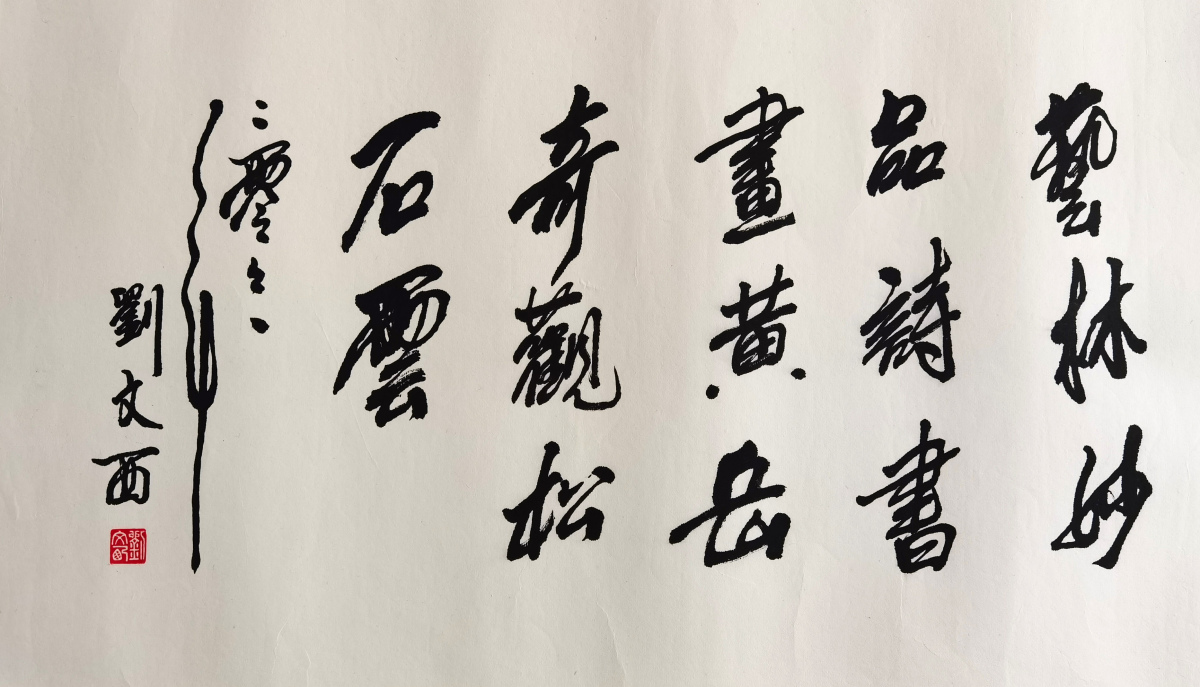 藝林妙
品詩書
畫黃岳
奇觀松
石雲
二零々一
年
劉文西
劉文西